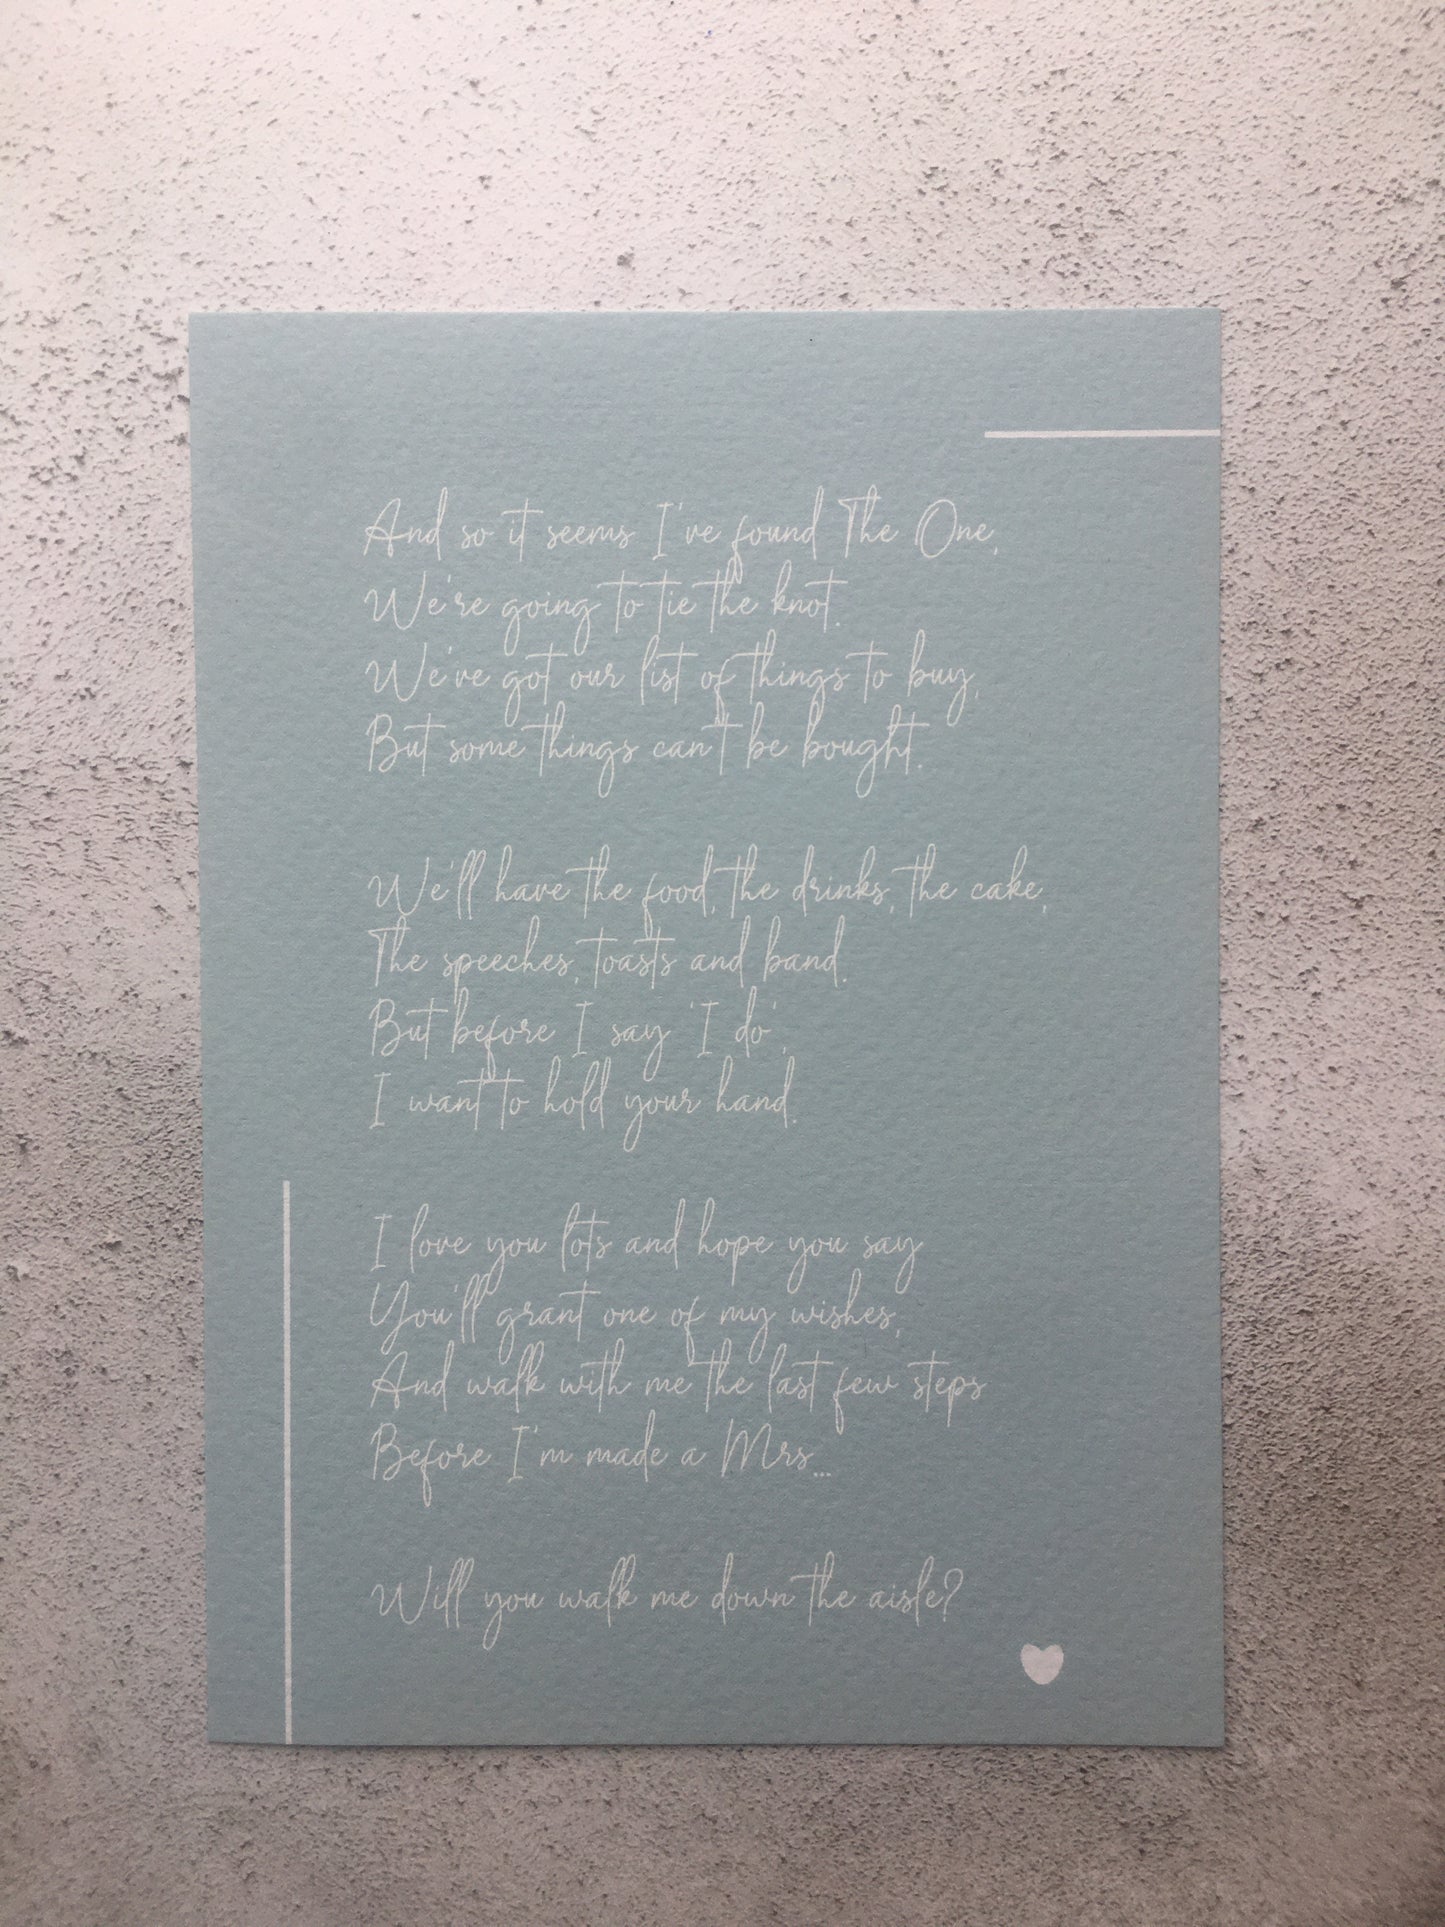 And so it seems I've found The One,
We're going to tie the knot.
We've got our list of things to buy,
But some things can't be bought.
We'll have the food, the drinks, the cake,
The speeches, toasts and band.
But before I say 'I do',
I want to hold your hand.
I love you lots and hope you say
You'll grant one of my wishes,
And walk with me the last few steps
Before I'm made a Mrs...
Will you walk me down the aisle?